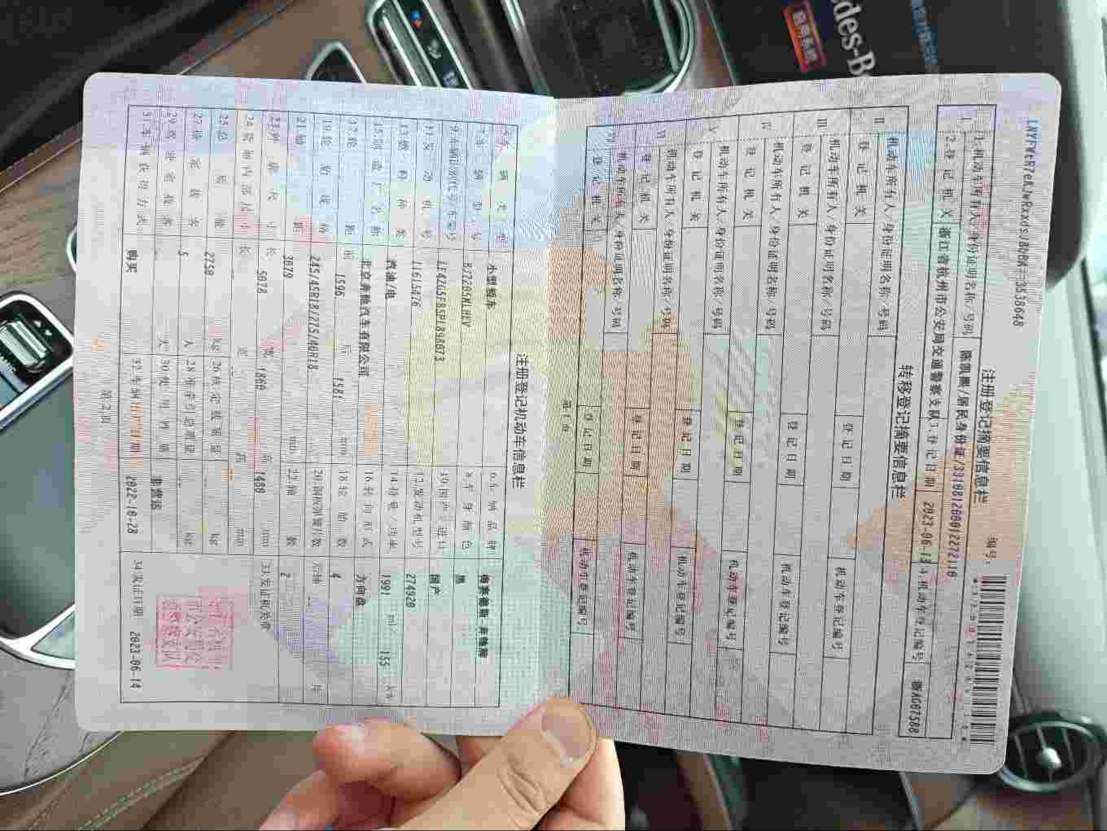 注册登记摘要信息栏
编号:
1.机动车所有人/身份证明名称/号码 陈凯鹏/居民身份证/331081200012272118
2.登记机关 浙江省杭州市公安局交通警察支队 3.登记日期 2023-06-13 4.机动车登记编号 浙AG87588
转移登记摘要信息栏
II 机动车所有人/身份证明名称/号码
登记机关 登记日期 机动车登记编号
III 机动车所有人/身份证明名称/号码
登记机关 登记日期 机动车登记编号
IV 机动车所有人/身份证明名称/号码
登记机关 登记日期 机动车登记编号
V 机动车所有人/身份证明名称/号码
登记机关 登记日期 机动车登记编号
VI 机动车所有人/身份证明名称/号码
登记机关 登记日期 机动车登记编号
VII 机动车所有人/身份证明名称/号码
登记机关 登记日期 机动车登记编号
第1页
注册登记机动车信息栏
5.车辆类型 小型轿车 6.车辆品牌 梅赛德斯-奔驰牌
7.车辆型号 8.车身颜色 黑
9.车辆识别代号/车架号 10.国产/进口 国产
11.发动机号 12.发动机型号 274920
13.燃料种类 汽油/电 14.排量/功率 1991 ml/ 155 kw
15.制造厂名称 北京奔驰汽车有限公司 16.转向形式 方向盘
17.轮距 前 1596 后 1581 mm 18.轮胎数 4
19.轮胎规格 245/45R18/275/40R18 20.钢板弹簧片数 后轴 片
21.轴距 3079 mm 22.轴数 2
23.外廓尺寸 长 5078 宽 1860 高 1480 mm
24.货厢内部尺寸 长 宽 高 mm
33.发证机关章
25.总质量 2750 kg 26.核定载质量 kg
27.核定载客 5 人 28.准牵引总质量 kg
29.驾驶室载客 人 30.使用性质 非营运
31.车辆获得方式 购买 32.车辆出厂日期 2022-10-28 34.发证日期 2023-06-14
第2页